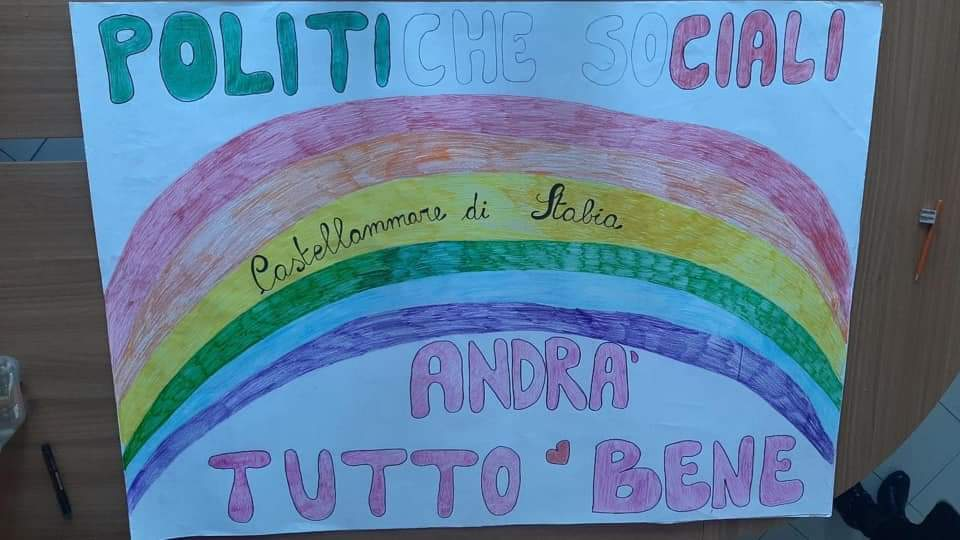 POLITICHE SOCIALI
Castellammare di Stabia
ANDRA'
TUTTO BENE